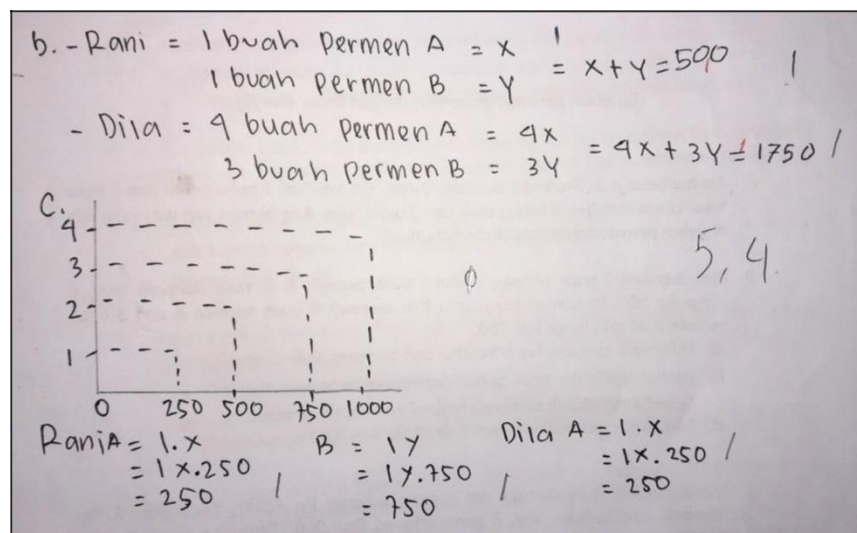 b. - Rani = 1 buah Permen A = X
1 buah Permen B = Y
= X + Y = 500
- Dila = 4 buah Permen A = 4X
3 buah Permen B = 3Y
= 4X + 3Y = 1750
C.
4
3
2
1
0 250 500 750 1000
5,4
Rani A = 1.X
= 1X.250
= 250
B = 1Y
= 1Y.750
= 750
Dila A = 1.X
= 1X.250
= 250